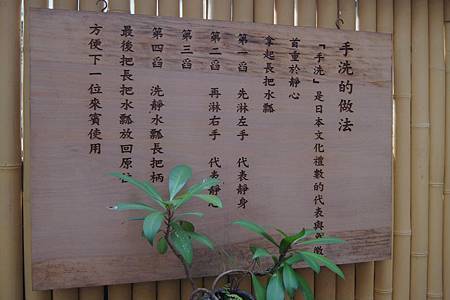 手洗的做法
「手洗」是日本文化禮數的代表與
首重於靜心
拿起長把水瓢
第一舀 先淋左手 代表靜身
第二舀 再淋右手 代表靜
第三舀
第四舀 洗靜水瓢長把柄
最後把長把水瓢放回原
方便下一位來賓使用